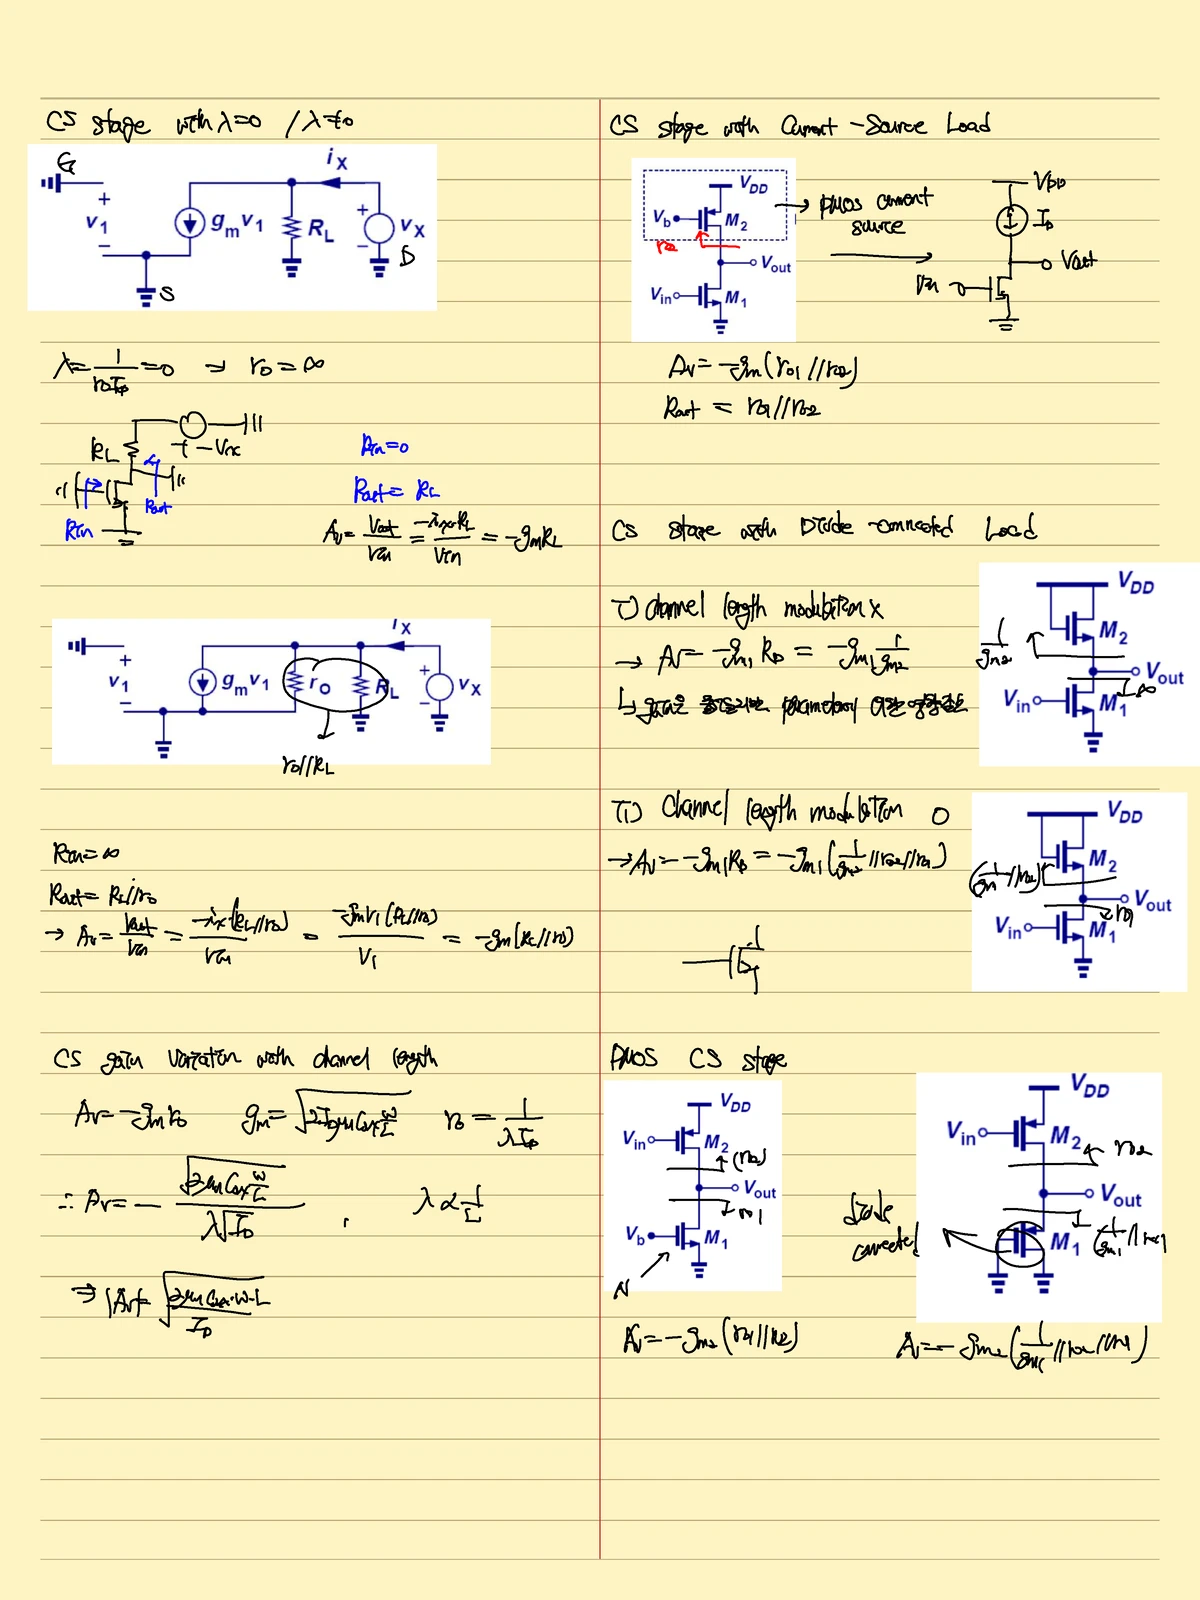 CS stage with λ=0 / λ≠0
G
+
v1
−
gmv1
RL
iX
+
−
vX
D
S
λ = 1/(roID) = 0 → ro = ∞
RL
+ −
Rout
Rin
Rin=0
Rout = RL
Av = Vout/Vin = −ix·RL/Vin = −gmRL
+
v1
−
gmv1
rO
RL
iX
+
−
vX
ro//RL
Rin=∞
Rout = RL//ro
→ Av = Vout/Vin = −ix(RL//ro)/Vin = −gmV1(RL//ro)/V1 = −gm(RL//ro)
CS gain variation with channel length
Av = −gmro gm = √(2IDμnCox W/L) ro = 1/(λID)
∴ Av = − √(2μnCox W/L)/(λ√ID) , λ ∝ 1/L
⇒ |Av| = √(2μnCox·W·L/ID)
CS stage with Current-Source Load
VDD
Vb
M2
ro2
Vout
Vin
M1
PMOS current
source
VDD
ID
Vout
Vin
Av = −gm(ro1//ro2)
Rout = ro1//ro2
CS stage with Diode-connected Load
i) channel length modulation X
→ Av = −gm1 RD = −gm1 1/gm2
VDD
1/gm2
M2
Vout
∞
Vin
M1
ii) Channel length modulation O
→ Av = −gm1RD = −gm1(1/gm2//ro2//ro1)
VDD
M2
(1/gm//ro2)
Vout
ro1
Vin
M1
PMOS CS stage
VDD
Vin
M2
(ro2)
Vout
ro1
Vb
M1
N
Av = −gm2(ro1//ro2)
VDD
Vin
M2
ro2
Vout
M1
(1/gm1//ro1)
diode
connected
Av = −gm2(1/gm1//ro2//ro1)